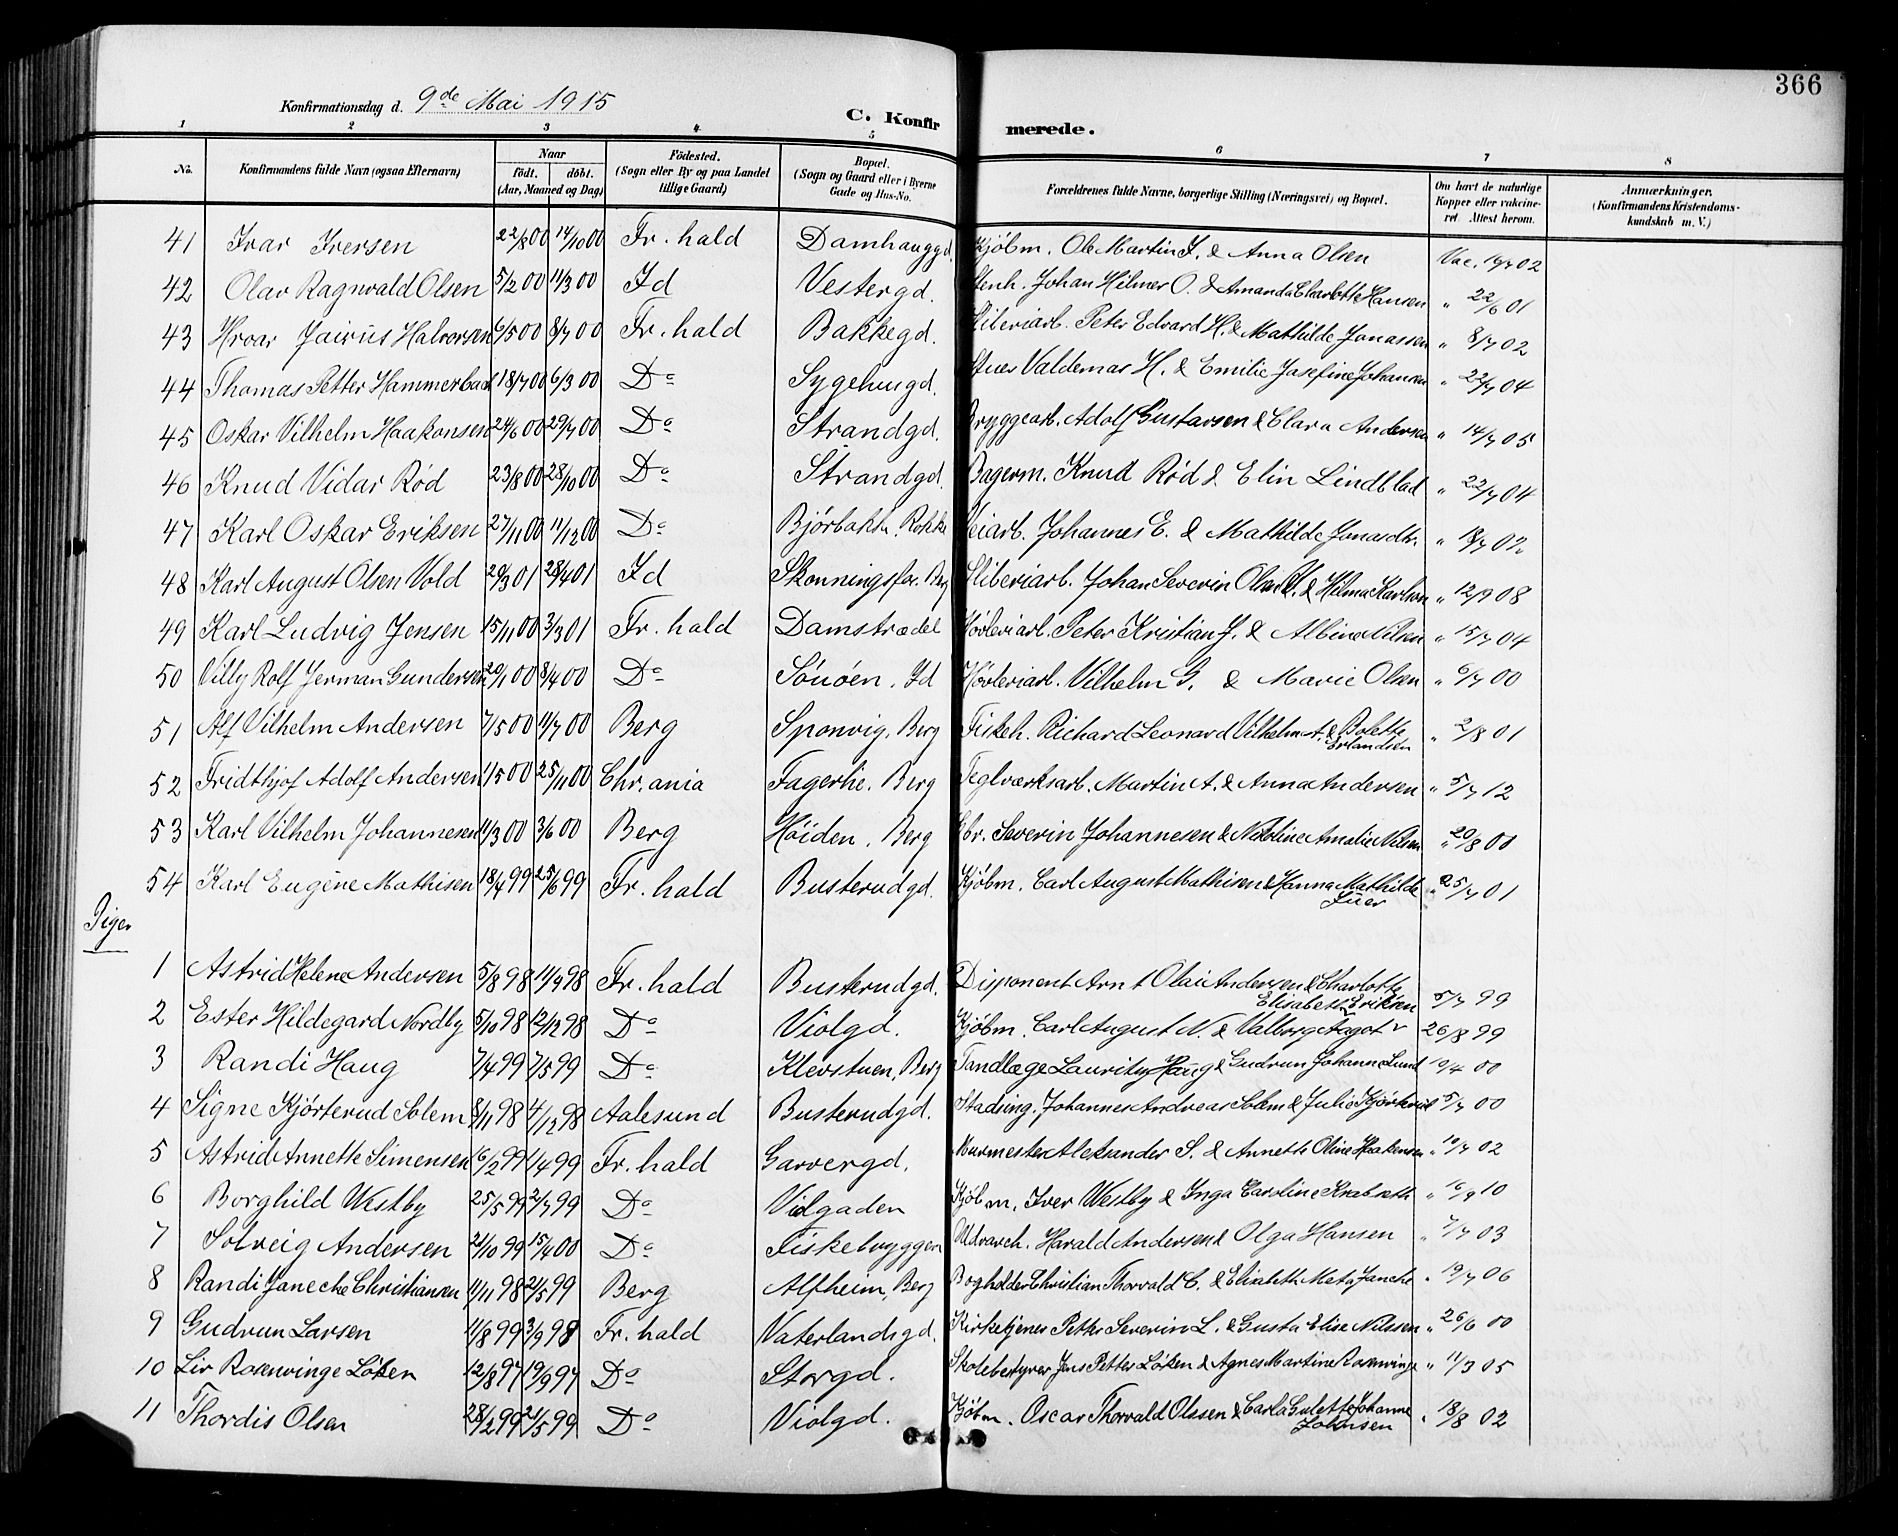 366
Konfirmationsdag d. 9de Mai 1915
C. Konfirmerede.
1 2 3 4 5 6 7 8
No. Konfirmandens fulde Navn (ogsaa Efternavn) Naar födt. döbt. (Aar, Maaned og Dag) Födested. (Sogn eller By og paa Landet tillige Gaard) Bopæl. (Sogn og Gaard eller i Byerne Gade og Hus-No. Forældrenes fulde Navne, borgerlige Stilling (Næringsvei) og Bopæl. Om havt de naturlige Kopper eller vakcineret. Attest herom. Anmærkninger. (Konfirmandens Kristendomskundskab m. V.)
41 Ivar Iversen 22/8 00 14/10 00 Fr. hald Damhauggd. Kjøbm. Ole Martin I. & Anna Olsen Vac. 02
42 Olav Ragnvald Olsen 5/2 00 11/3 00 Id Vestergd. Stenh. Johan Hilmer O. & Amanda Charlotte Hansen " 22/6 01
43 Hroar Jairus Halvorsen 6/5 00 8/7 00 Fr. hald Bakkegd. Sliberiarb. Peter Edvard H. & Mathilde Jonassen " 8/7 02
44 Thomas Petter Hammerbac 18/1 00 6/3 00 Do Sygehusgd. Stues Valdemar H. & Emilie Josefine Johansen " 22/7 04
45 Oskar Vilhelm Haakonsen 24/6 00 29/7 00 Do Strandgd. Bryggearb. Adolf Gustavsen & Clara Andersen " 14/7 05
46 Knud Vidar Rød 23/8 00 28/10 00 Do Strandgd. Bagerm. Knud Rød & Elin Lindblad " 22/7 04
47 Karl Oskar Eriksen 27/11 00 11/12 00 Do Bjørbakk. Rokke Veiarb. Johannes E. & Mathilde Jonasdtr. " 18/7 02
48 Karl August Olsen Vold 20/3 01 28/4 01 Id Skonningsfos. Berg Sliberiarb. Johan Severin Olsen V. & Hilma Karlson " 12/9 08
49 Karl Ludvig Jensen 15/11 00 3/3 01 Fr. hald Damstrædet Høvleriarb. Peter Kristian J. & Albine Nilsen " 15/7 04
50 Villy Rolf Jerman Gundersen 20/1 00 8/4 00 Do Sønøen. Id Høvleriarb. Vilhelm G. & Marie Olsen " 6/7 00
51 Alf Vilhelm Andersen 7/5 00 11/7 00 Berg Sponvig. Berg Fiskeh. Richard Leonard Vilhelm A. & Bolette Erlandsen " 2/8 01
52 Fridthjof Adolf Andersen 1/5 00 25/11 00 Chr.ania Fagerhe. Berg Teglværksarb. Martin A. & Anna Andersen " 5/7 12
53 Karl Vilhelm Johannesen 11/3 00 3/6 00 Berg Høiden. Berg Gbr. Severin Johannesen & Nikoline Amalie Nilsen " 20/8 00
54 Karl Eugéne Mathisen 18/4 99 25/6 99 Fr. hald Busterudgd. Kjøbm. Carl August Mathisen & Hanna Mathilde Juer " 25/7 01
Piger
1 Astrid Helene Andersen 5/8 98 11/9 98 Fr. hald Busterudgd. Disponent Arnt Olai Andersen & Charlotte Elisabeth Eriksen 5/7 99
2 Ester Hildegard Nordby 5/10 98 12/12 98 Do Violgd. Kjøbm. Carl August N. & Valborg Aagot 26/8 99
3 Randi Haug 7/4 99 7/5 99 Do Klevstuen, Berg Tandlæge Lauritz Haug & Gudrun Johanne Lund 10/4 00
4 Signe Kjørterud Solem 8/11 98 4/12 98 Aalesund Busterudgd. Stadsing. Johannes Andreas Solem & Julie Kjørterud 5/7 00
5 Astrid Annette Simensen 16/2 99 1/4 99 Fr. hald Garvergd. Murmester Aleksander S. & Annette Oline Haakensen " 10/7 02
6 Borghild Westby 25/5 99 2/7 99 Do Violgaden Kjøbm. Iver Westby & Inga Caroline Knabseth " 16/9 10
7 Solveig Andersen 21/10 99 15/4 00 Do Fiskebryggen Harald Andersen & Olga Hansen " 7/7 03
8 Randi Janeche Christiansen 11/11 98 21/5 99 Berg Alfheim, Berg Bogholder Christian Thorvald C. & Elisabeth Meta Janche " 19/7 06
9 Gudrun Larsen 11/8 99 3/9 98 Fr. hald Vaterlandsgd. Kirketjener Petter Severin L. & Gusta Elise Nilssen " 26/6 00
10 Liv Rosenvinge Løken 12/8 97 19/9 97 Do Storgd. Skolebestyrer Jens Petter Løken & Agnes Martine Rosenvinge " 11/3 05
11 Thordis Olsen 28/2 99 21/5 99 Do Violgd. Kjøbm. Oscar Thorvald Olssen & Carla Gulette Johanne Johnsen " 18/8 02